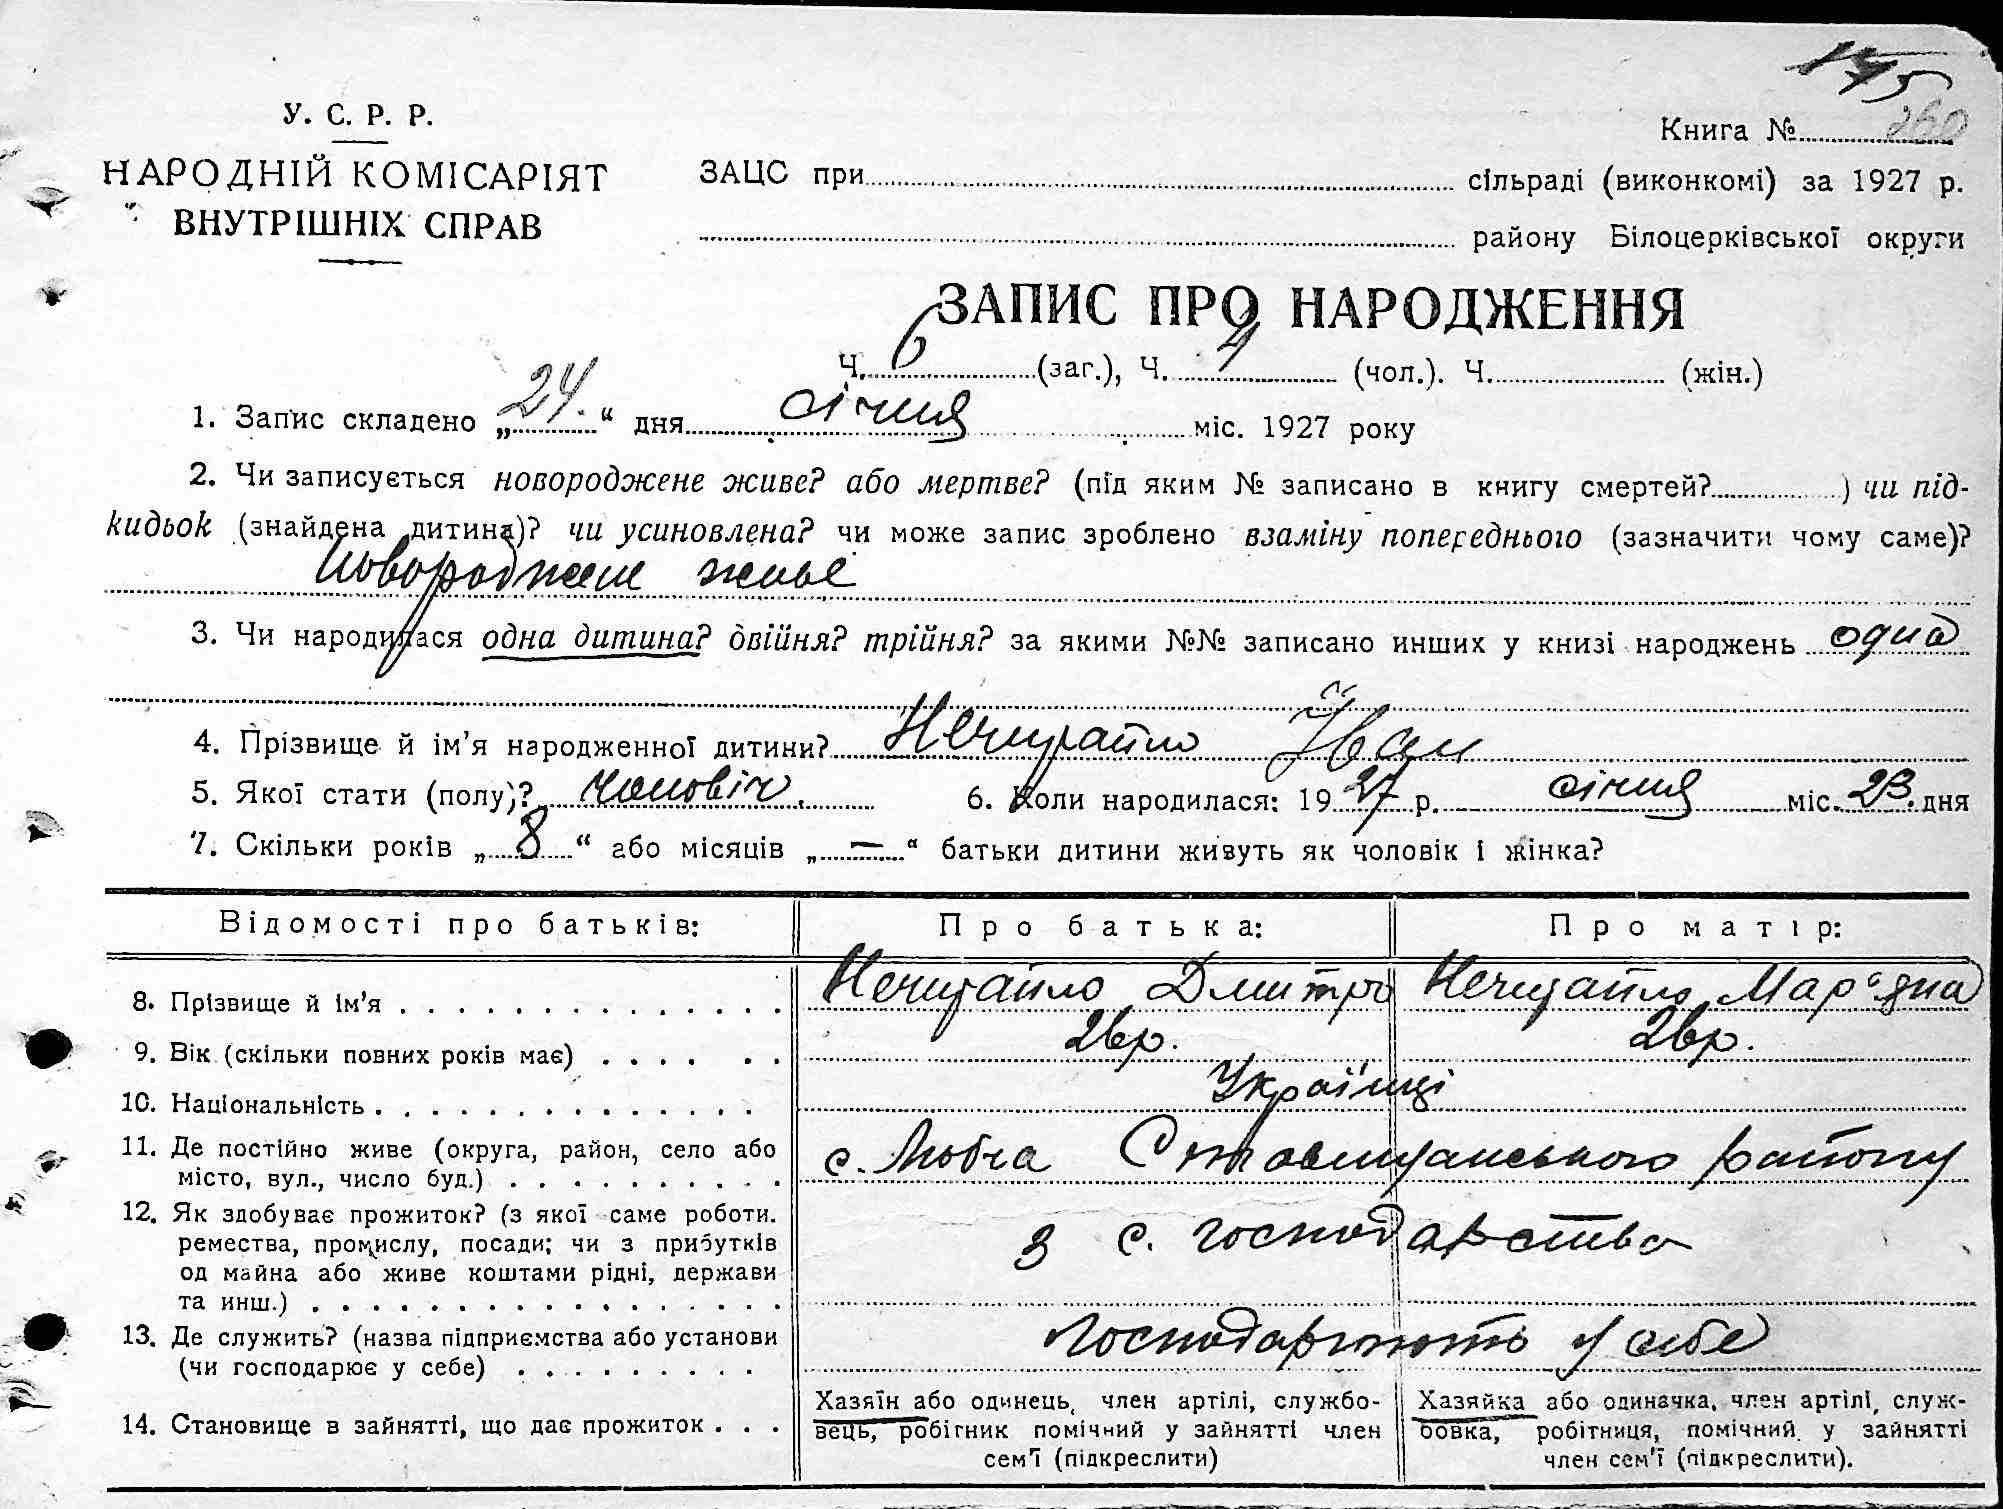 175
260
У. С. Р. Р.
НАРОДНІЙ КОМІСАРІЯТ
ВНУТРІШНІХ СПРАВ
Книга №
ЗАЦС при сільраді (виконкомі) за 1927 р.
району Білоцерківської округи
ЗАПИС ПРО НАРОДЖЕННЯ
Ч. 6 (заг.), Ч. 4 (чол.). Ч. (жін.)
1. Запис складено „24.“ дня січня міс. 1927 року
2. Чи записується новороджене живе? або мертве? (під яким № записано в книгу смертей? ) чи під-
кидьок (знайдена дитина)? чи усиновлена? чи може запис зроблено взаміну попереднього (зазначити чому саме)?
Новороджене живе
3. Чи народилася одна дитина? двійня? трійня? за якими №№ записано инших у книзі народжень одна
4. Прізвище й ім'я народженної дитини? Нечипайло Іван
5. Якої стати (полу)? чоловіч. 6. Коли народилася: 1927 р. січня міс. 23. дня
7. Скільки років „8“ або місяців „—“ батьки дитини живуть як чоловік і жінка?
Відомості про батьків: Про батька: Про матір:
8. Прізвище й ім'я . . . . . . . . . . . . . . Нечипайло Дмитро Нечипайло Мар'яна
9. Вік (скільки повних років має) . . . . . . 26р. 26р.
10. Національність . . . . . . . . . . . . . . Українці
11. Де постійно живе (округа, район, село або
місто, вул., число буд.) . . . . . . . . . . с. Любча Ставищанського району
12. Як здобуває прожиток? (з якої саме роботи.
ремества, промислу, посади; чи з прибутків
од майна або живе коштами рідні, держави
та инш.) . . . . . . . . . . . . . . . . . з с. господарства
13. Де служить? (назва підприємства або установи
(чи господарює у себе) . . . . . . . . . Господарюють у себе
14. Становище в зайнятті, що дає прожиток . . .
Хазяїн або одинець, член артілі, службо-
вець, робітник помічний у зайнятті член
сем'ї (підкреслити)
Хазяйка або одиначка, член артілі, служ-
бовка, робітниця, помічний у зайнятті
член сем'ї (підкреслити).